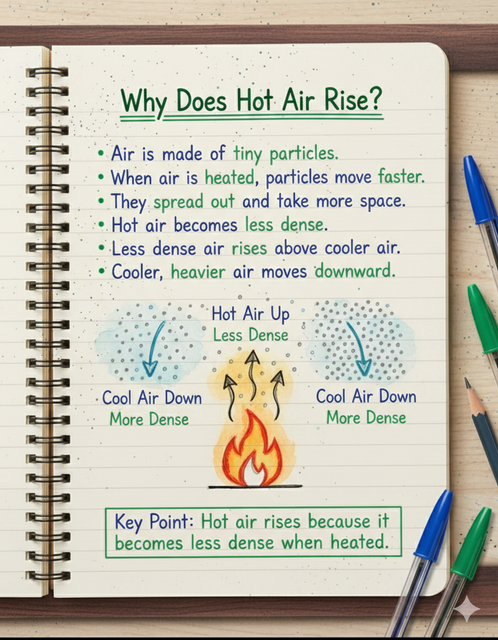 Why Does Hot Air Rise?
• Air is made of tiny particles.
• When air is heated, particles move faster.
• They spread out and take more space.
• Hot air becomes less dense.
• Less dense air rises above cooler air.
• Cooler, heavier air moves downward.
Hot Air Up
Less Dense
Cool Air Down
More Dense
Cool Air Down
More Dense
Key Point: Hot air rises because it
becomes less dense when heated.